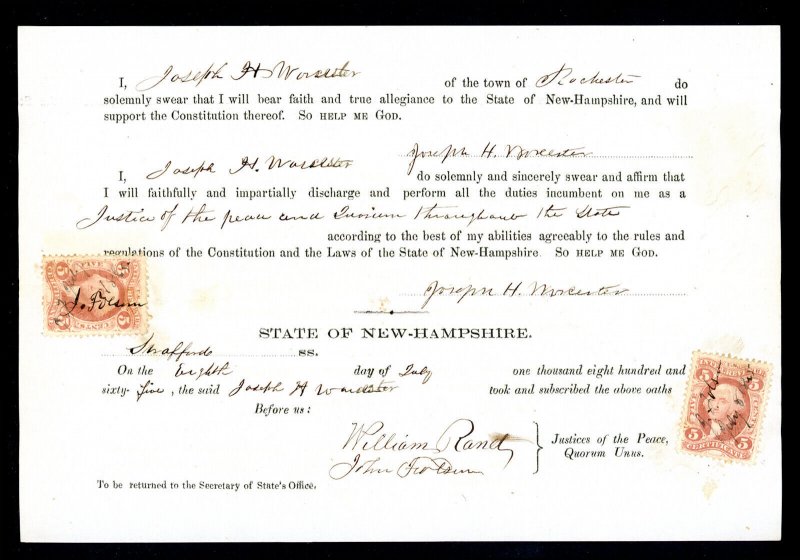 I, Joseph H Worcester of the town of Rochester do
solemnly swear that I will bear faith and true allegiance to the State of New-Hampshire, and will
support the Constitution thereof. So HELP ME GOD.
Joseph H. Worcester
I, Joseph H. Worcester do solemnly and sincerely swear and affirm that
I will faithfully and impartially discharge and perform all the duties incumbent on me as a
Justice of the peace and Quorum throughout the State
according to the best of my abilities agreeably to the rules and
regulations of the Constitution and the Laws of the State of New-Hampshire. So HELP ME GOD.
Joseph H. Worcester
STATE OF NEW-HAMPSHIRE.
Strafford ss.
On the Eighth day of July one thousand eight hundred and
sixty- five, the said Joseph H Worcester took and subscribed the above oaths
Before us:
William Rand
John Folsom
Justices of the Peace,
Quorum Unus.
To be returned to the Secretary of State's Office.
5 FIVE 5
J. Folsom
5 CENTS 5
5 5
5 CERTIFICATE 5